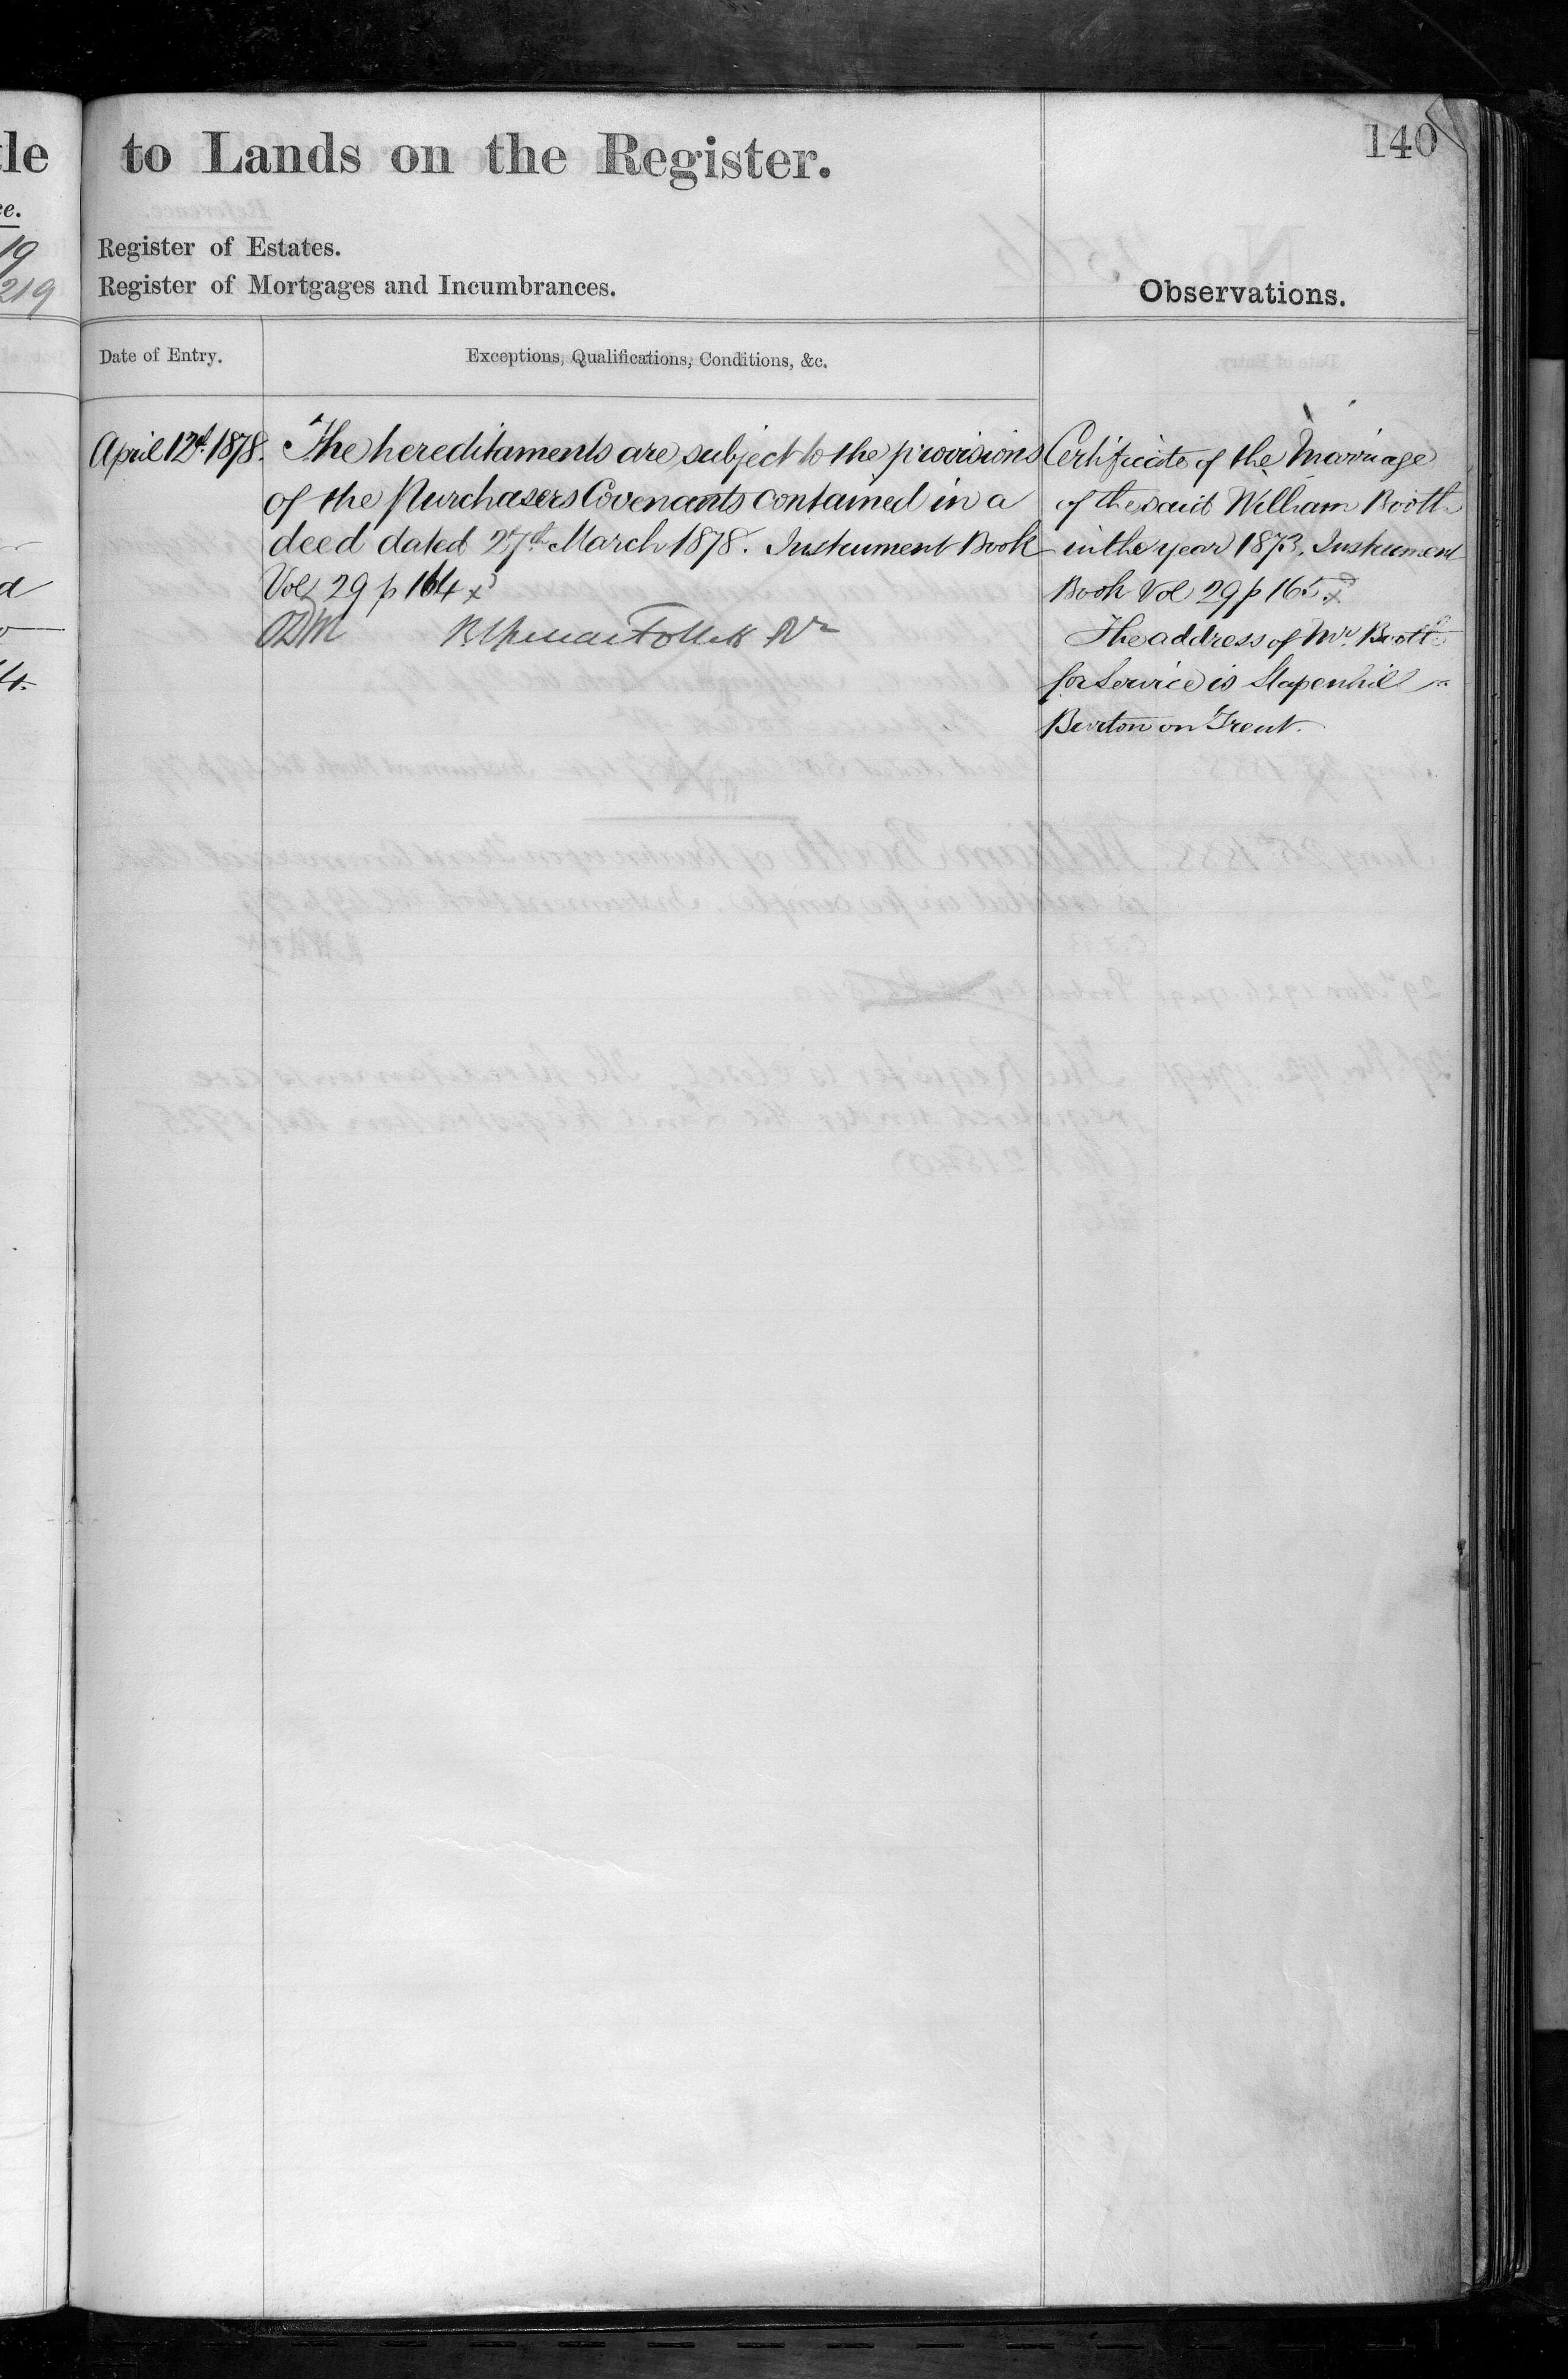 to Lands on the Register.
140
Register of Estates.
Register of Mortgages and Incumbrances.
Observations.
Date of Entry.
Exceptions, Qualifications, Conditions, &c.
April 12th 1878.
The hereditaments are subject to the provisions
of the Purchasers Covenants contained in a
deed dated 27th March 1878. Instrument Book
Vol 29 p 164
Certificate of the Marriage
of the said William Booth
in the year 1873, Instrument
Book Vol 29 p 165
The address of Mr. Booth
for Service is Stapenhill
Burton on Trent.